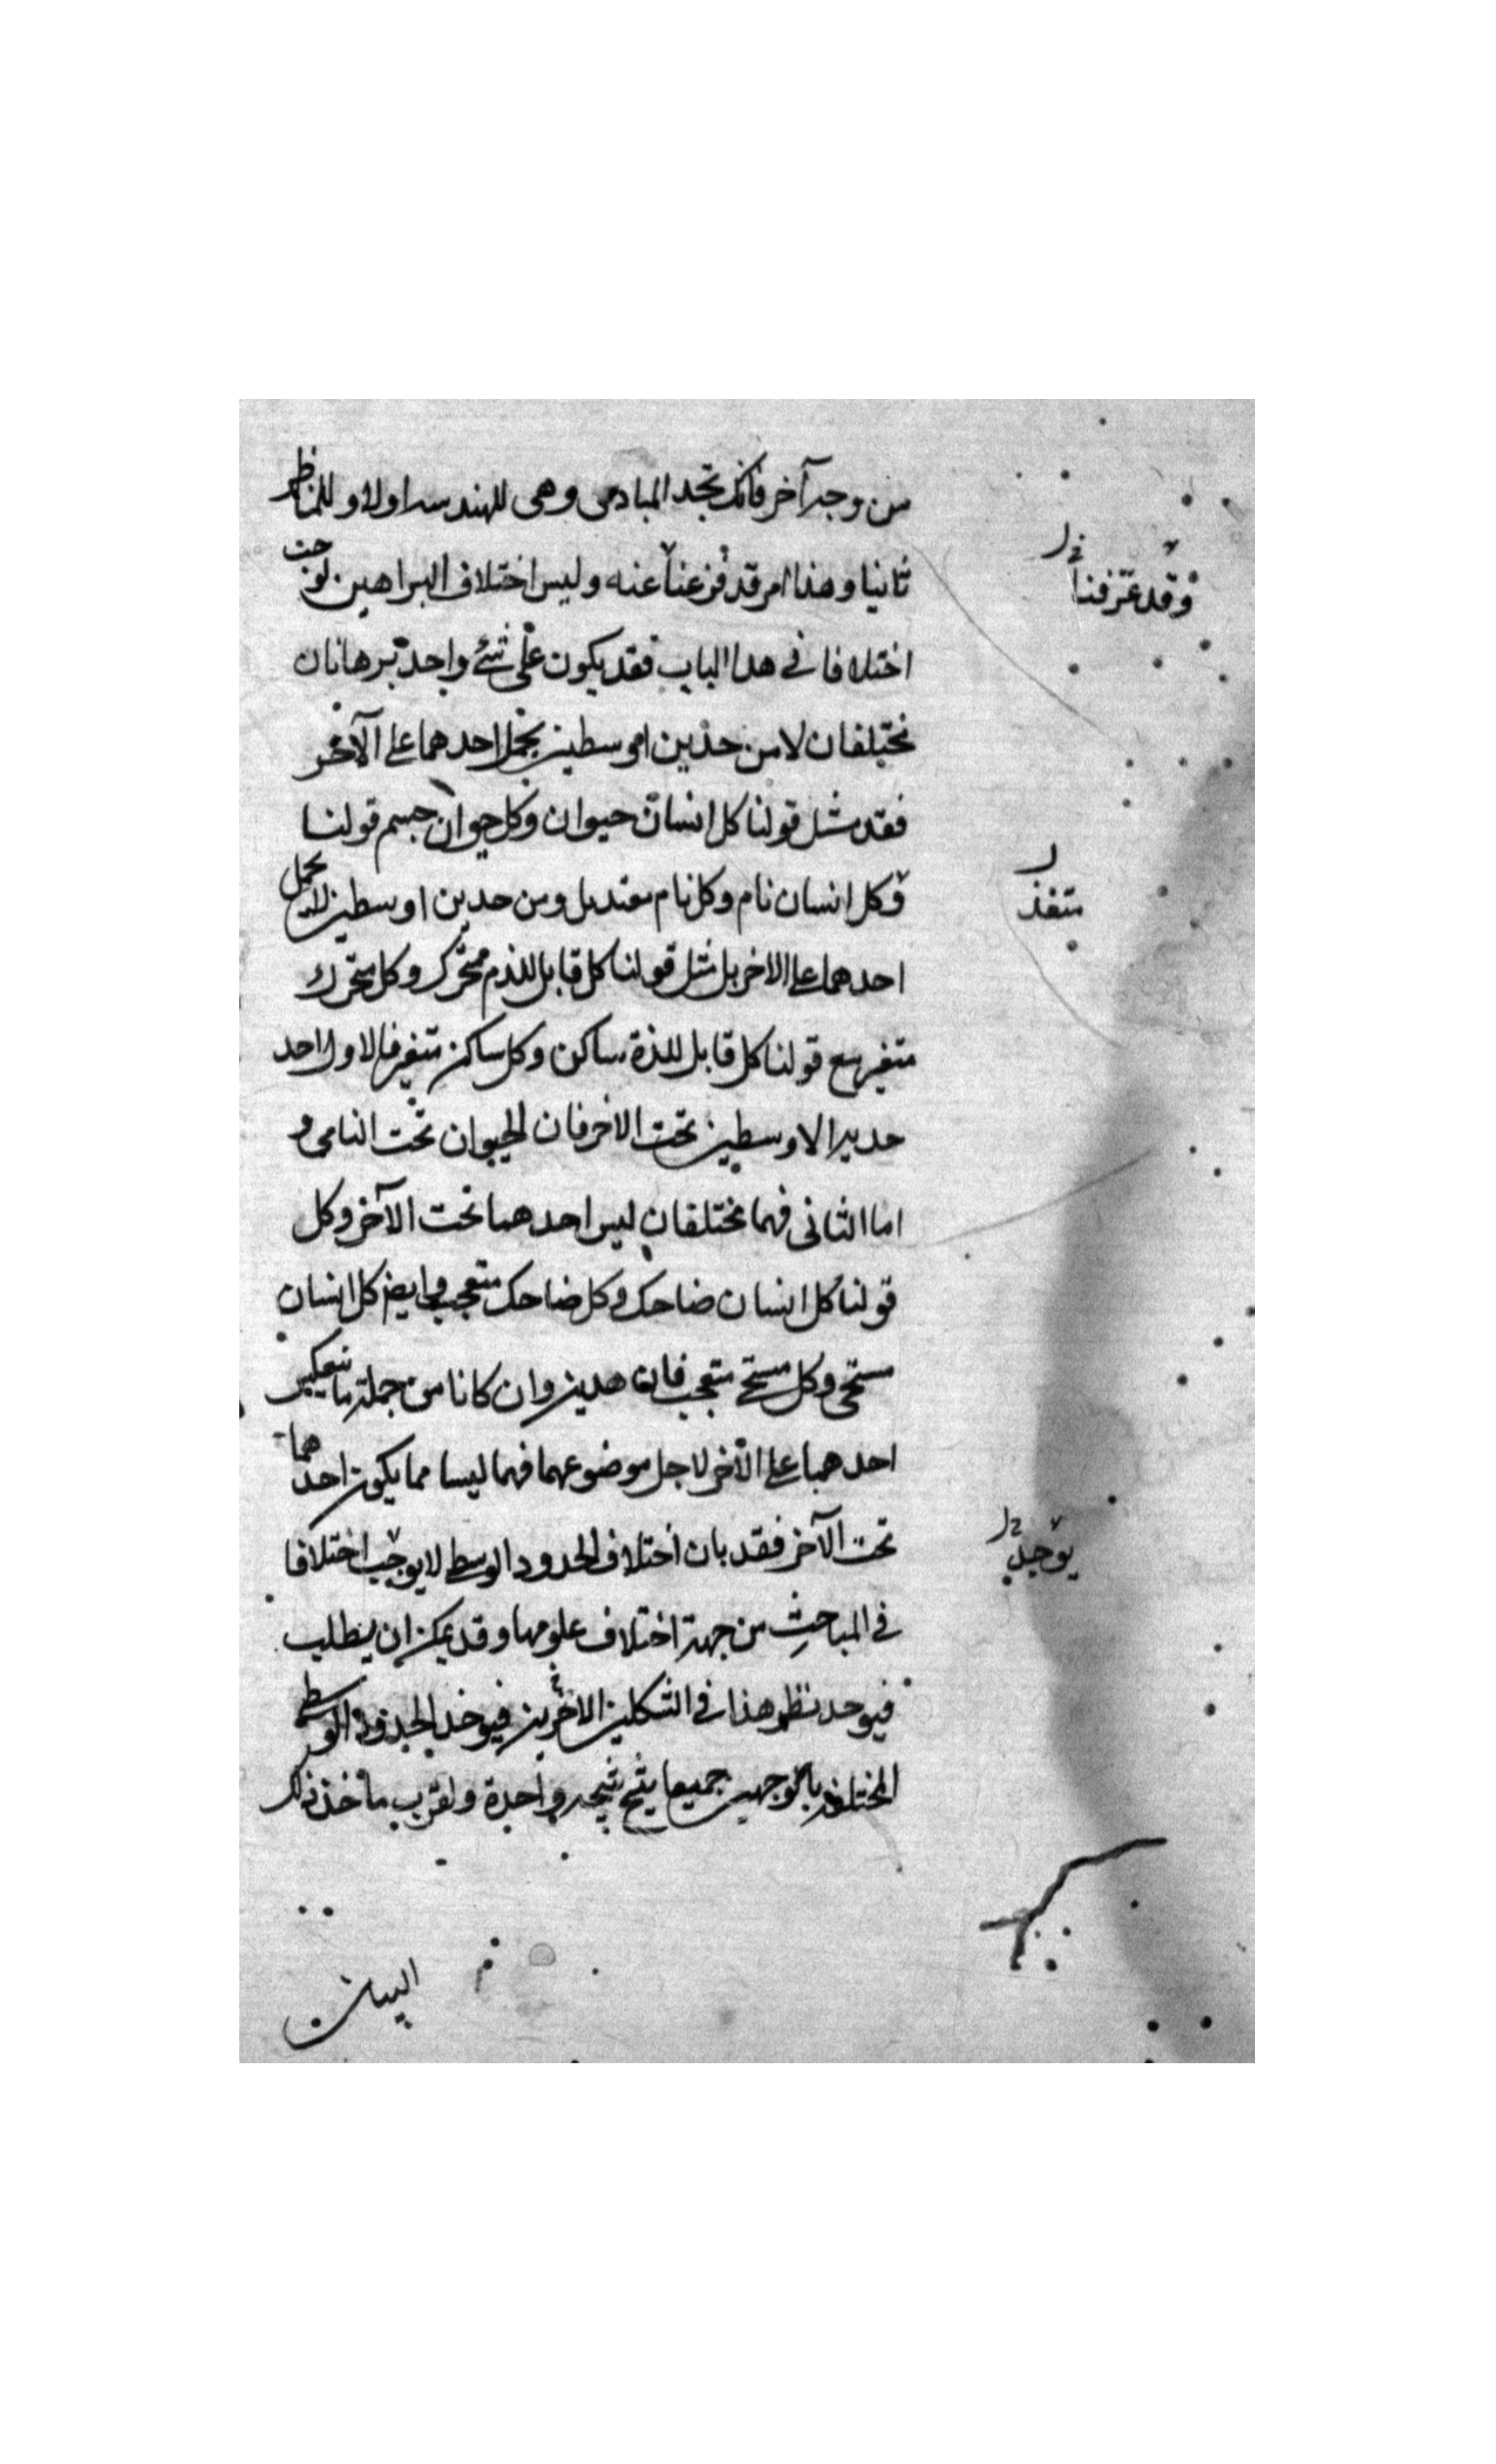 من وجه آخر فانك تجد المبادى وهى للهندسه اولا و للمناظر
ثانيا وهذا امر قد فرغنا عنه وليس اختلاف البراهين توجب
اختلافا فى هذا الباب فقد يكون على شئ واحد برهانان
مختلفان لا من حدين اوسطين يحمل احدهما على الآخر
فقد مثل قولنا كل انسان حيوان وكل حيوان جسم قولنا
وكل انسان نام وكل نام ومن حدين اوسطين لا يحمل
احدهما على الاخر بل مثل قولنا كل قابل للذه متحرك وكل متحرك
متغير مع قولنا كل قابل للذة ساكن وكل ساكن متغير فالاول احد
حديه الاوسطين تحت الاخر فان الحيوان تحت النامى و
اما الثانى فهما مختلفان ليس احدهما تحت الآخر وكل
قولنا كل انسان ضاحك وكل ضاحك متعجب وايض كل انسان
مستحى وكل مستحى متعجب فان هذين وان كانا من جملة ما
احدهما على الآخر لاجل موضوعهما فهما ليسا مما يكون احدهما
تحت الآخر فقد بان اختلاف الحدود الوسط لا يوجب اختلافا
فى المباحث من جهة اختلاف علومها وقد يمكن ان يطلب
فيوجد نظير هذا فى الشكلين الاخرين فيوخذ الحدود الوسط
المختلفة بالوجهين جميعا ينتج نتيجه واحدة ولقرب ماخذ ذلك
البيان
وقد عرفنا
متغذ
يوجد